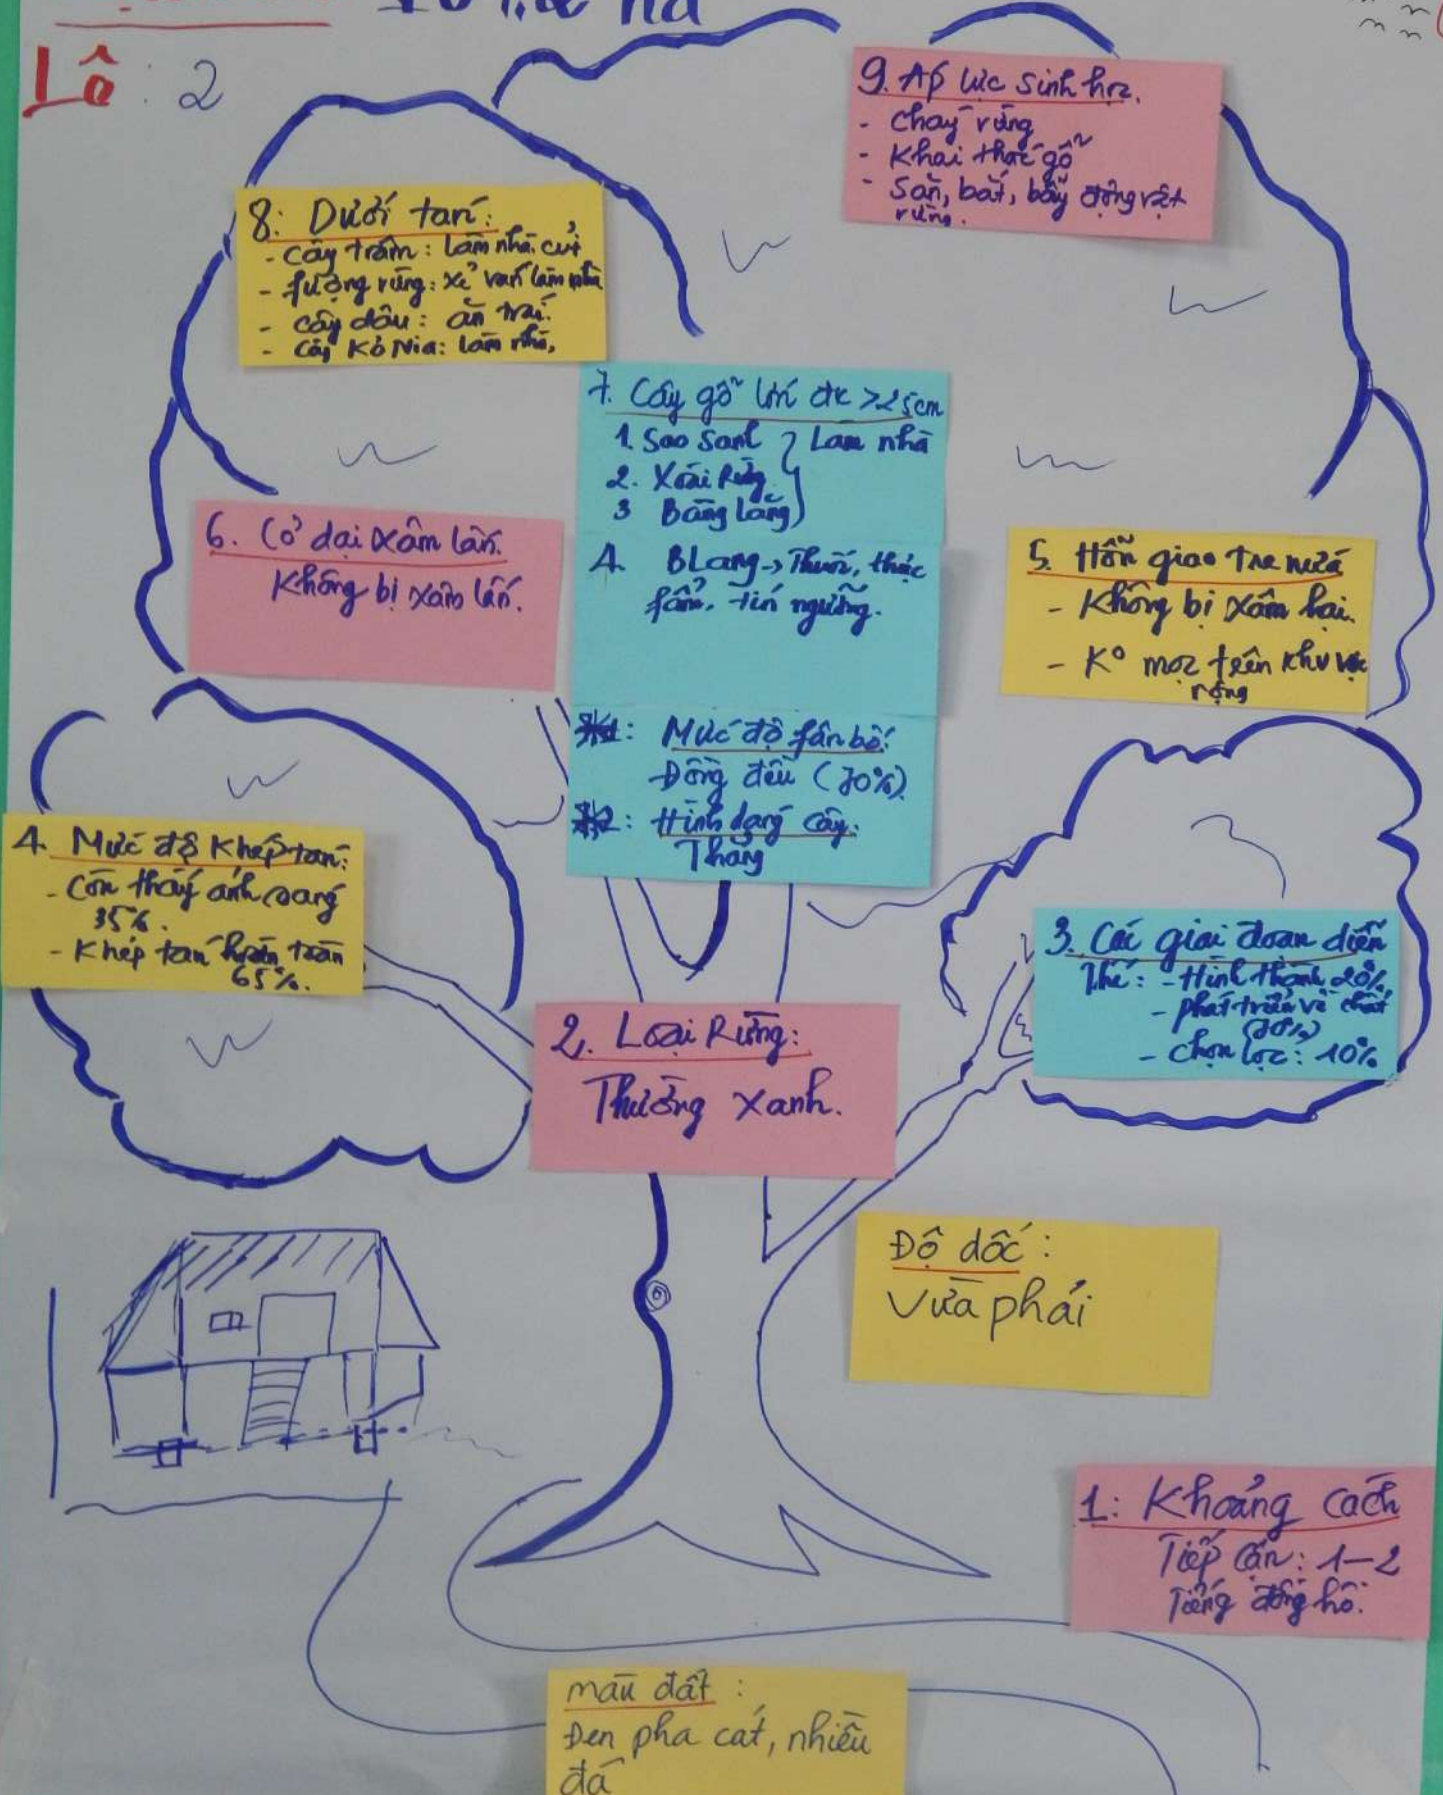 Lô : 2
9. Áp lực sinh học.
- cháy rừng
- Khai thác gỗ
- săn, bắt, bẫy động vật
rừng.
8: Dưới tán:
- cây trâm: làm nhà. củi
- fượng rừng: xẻ ván làm nhà
- cây dâu: ăn trái.
- cây Kơ Nia: làm nhà,
7. Cây gỗ lớn đk >25cm
1. Sao Sanh } Làm nhà
2. Xoài Rừng
3 Bằng Lăng
4. BLang → Thuốc, thực
fẩm, tín ngưỡng.
6. Cỏ dại xâm lấn.
Không bị xâm lấn.
5. Hỗn giao tre nứa
- Không bị xâm hại.
- Ko mọc trên khu vực
rộng
*1: Mức độ fân bố:
Đồng đều (70%).
*2: Hình dạng cây:
Thẳng
4. Mức độ Khép tán:
- Còn thấy ánh sáng
35%.
- Khép tán hoàn toàn
65%.
3. Các giai đoạn diễn
thế: - Hình thành 20%,
- phát triển về chất
(70%)
- chọn lọc: 10%
2. Loại Rừng:
Thường xanh.
Độ dốc :
Vừa phải
1: Khoảng cách
Tiếp cận: 1-2
Tiếng đồng hồ.
màu đất :
Đen pha cát, nhiều
đá